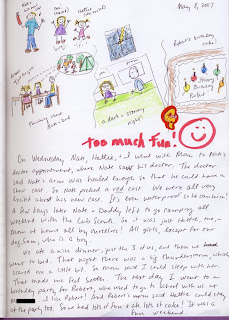 May 8, 2007
Robert's birthday cake!
a dark + stormy night!
too much fun!
On Wednesday, Nate, Hattie, + I went with Mom to Nate's
doctor appointment, where Nate saw his doctor. The doctor
said Nate's arm was healed enough so that he could have a
short cast. So Nate picked a red cast. We were all very
excited about his new cast. It's even waterproof so he can swim!
A few days later Nate + Daddy left to go camping all
weekend with the Cub Scouts. So it was just Hattie, me,
Mom at home all by ourselves! All girls, except for our
dog, Sam, who is a boy.
We ate a nice dinner, just the 3 of us, and then we
went to bed. That night there was a big thunderstorm, which
scared me a little bit. So Mom said I could sleep with her.
That made me feel better. The next day I went to a
birthday party for Roberto, who used to go to school with us at
I like Robert! And Robert's mom said Hattie could stay
at the party, too. So we had lots of fun + ate lots of cake! It was a
fun weekend